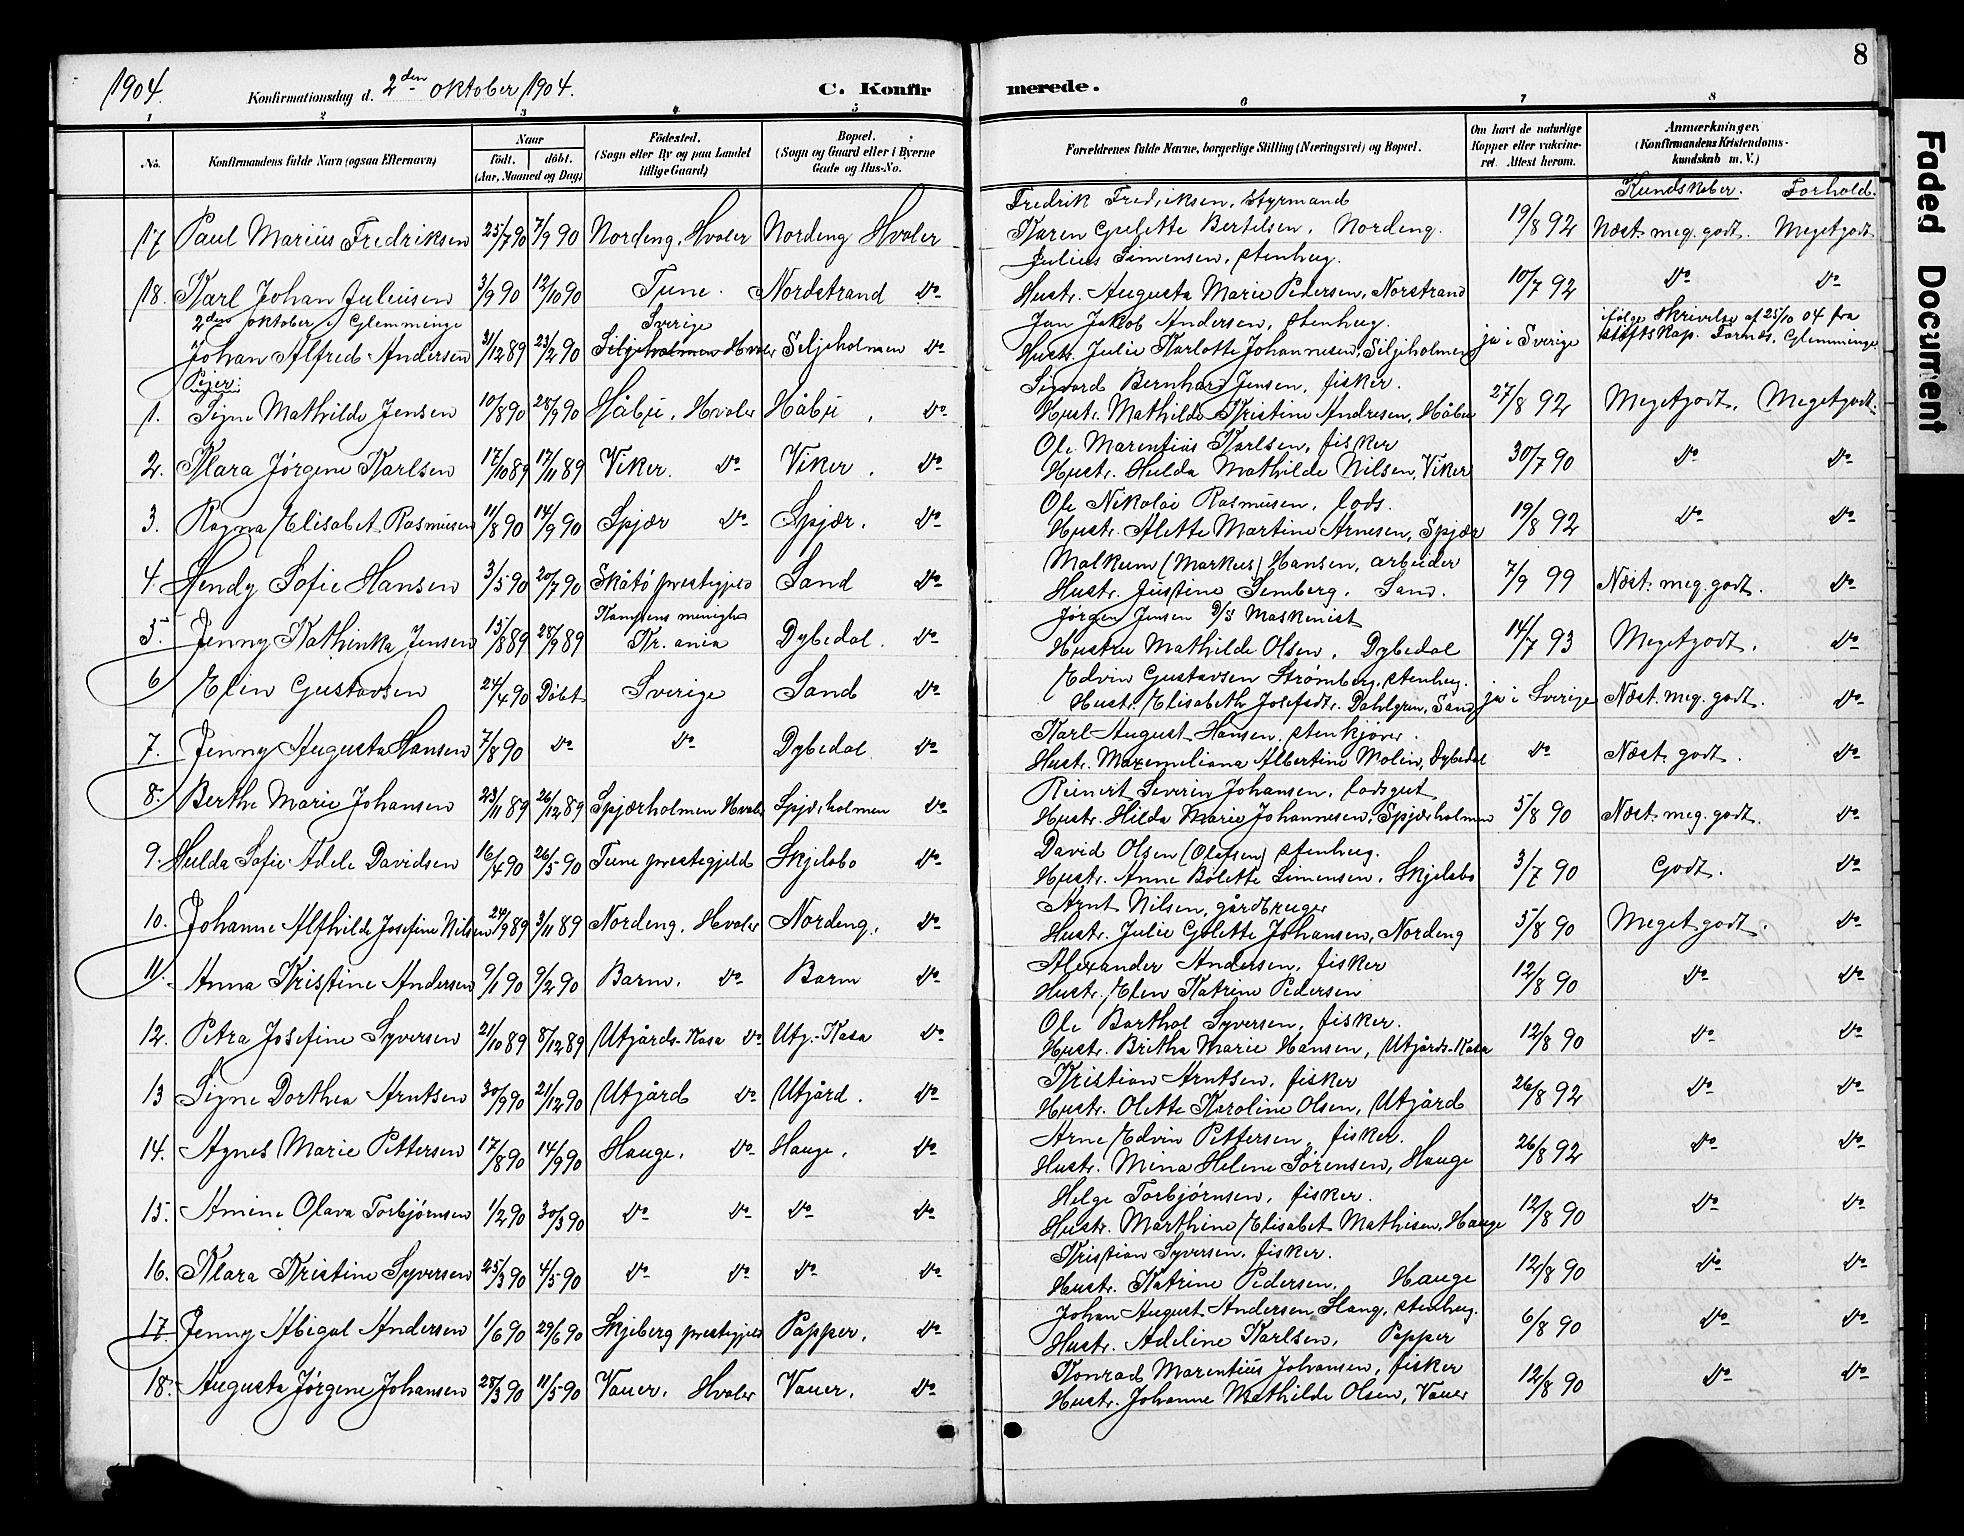 1904.
Konfirmationsdag d. 2den oktober 1904.
C. Konfirmerede.
8
1 2 3 4 5 6 7 8
No.
Konfirmandens fulde Navn (ogsaa Efternavn)
Naar
födt. döbt.
(Aar, Maaned og Dag)
Födested.
(Sogn eller By og paa Landet tillige Gaard)
Bopæl.
(Sogn og Gaard eller i Byerne Gade og Hus-No.
Forældrenes fulde Navne, borgerlige Stilling (Næringsvei) og Bopæl.
Om havt de naturlige Kopper eller vaccineret. Attest herom.
Anmærkninger.
(Konfirmandens Kristendomskundskab m. V.)
Kundskaber. Forhold.
17 Paul Marius Fredriksen 25/7 90 7/9 90 Nordeng, Hvaler Nordeng Hvaler Fredrik Fredriksen, styrmand
Karen Gulette Bertelsen, Nordeng. 19/8 92 Næst. meg. godt. Meget godt
18. Karl Johan Juliusen 3/9 90 12/10 90 Tune. Nordstrand do Julius Simensen, stenhug.
Hustr. Augusta Marie Pedersen, Norstrand 10/7 92 do do
2den oktober i Glemminge
Johan Alfred Andersen 31/12 89 23/2 90 Sverige Siljeholmen Hvaler Siljeholmen do Jan Jakob Andersen, stenhug.
Hustr. Julie Karlotte Johannesen, Siljeholmen ja i Sverige ifølge Skrivelse af 25/10 04 fra stiftskap. Tornæs, Glemminge
Piger.
1. Signe Mathilde Jensen 10/8 90 28/9 90 Håbu, Hvaler Håbu, do Sigvard Bernhard Jensen, fisker.
Hustr. Mathilde Kristine Andresen, Håbu 27/8 92 Meget godt. Meget godt.
2. Klara Jørgene Karlsen 17/10 89 17/11 89 Viker. do Viker. do Ole Marentius Karlsen, fisker
Hustr. Hulda Mathilde Nilsen, Viker 30/7 90 do do
3. Ragna Elisabet Rasmusen 11/8 90 14/9 90 Spjær do Spjær. do Ole Nikolai Rasmusen, lods.
Hustr. Alette Martine Arnesen, Spjær 19/8 92 do do
4 Hendy Sofie Hansen 3/5 90 20/7 90 Skåtø prestegjeld Sand do Malkum (Markus) Hansen, arbeider
Hustr. Justine Semberg, Sand. 7/9 99 Næst. meg. godt. do
5. Jenny Kathinka Jensen 15/8 89 28/9 89 Kampens menighed Kr.ania Dybedal. do Jørgen Jensen D/S Maskinist
Hustru Mathilde Olsen, Dybedal 14/7 93 Meget godt. do
6 Elin Gustavsen 24/4 90 Döbt Sverige Sand do Edvin Gustavsen Strømberg, stenhug.
Hustr. Elisabeth Josefsdtr. Dahlgren, Sand ja i Sverige Næst. meg. godt. do
7. Jenny Augusta Hansen 7/8 90 do do Dybedal do Karl August Hansen, stenkjører.
Hustr. Maxemeliana Albertine Molin, Dybedal do Næst godt. do
8. Berthe Marie Johansen 23/11 89 26/12 89 Spjærholmen Hvaler Spjærholmen do Reinert Severin Johansen, lodsgut
Hustr. Hilda Marie Johannesen, Spjærholmen 5/8 90 Næst. meg. godt. do
9. Hulda Sofie Adele Davidsen 16/4 90 26/5 90 Tune prestegjeld Skjelsbo do David Olsen (Olafsen) stenhug.
Hustr. Anne Bolette Simensen, Skjelsbo 3/7 90 Godt. do
10. Johanne Alfhilde Josefine Nilsen 24/9 89 3/11 89 Nordeng, Hvaler Nordeng, do Arnt Nilsen, gårdbruger
Hustr. Julie Golette Johansen, Nordeng 5/8 90 Meget godt. do
11. Anna Kristine Andersen 9/1 90 9/2 90 Barm, do Barm do Alexander Andersen, fisker
Hustr. Elen Katrine Pedersen 12/8 90 do do
12. Petra Josefine Syversen 21/10 89 8/12 89 Utgårds-Kasa do Utg.-Kasa do Ole Barthol Syversen, fisker.
Hustr. Britha Marie Hansen, Utgårds-Kasa 12/8 90 do do
13 Signe Dorthea Arntsen 30/9 90 21/12 90 Utgård do Utgård. do Kristian Arntsen, fisker
Hustr. Olette Karoline Olsen, Utgård 26/8 92 do do
14. Agnes Marie Pettersen 17/8 90 14/9 90 Hauge, do Hauge, do Arne Edvin Pettersen, fisker.
Hustr. Mina Helene Sørensen, Hauge 26/8 92 do do
15. Amine Olava Torbjørnsen 1/2 90 30/3 90 do do do do Helge Torbjørnsen, fisker.
Hustr. Marthine Elisabet Mathisen, Hauge 12/8 90 do do
16. Klara Kristine Syversen 25/3 90 4/5 90 do do do do Kristian Syversen, fisker.
Hustr. Katrine Pedersen, Hauge 12/8 90 do do
17. Jenny Abigal Andersen 1/6 90 29/6 90 Skjeberg prestegjeld Papper, do Johan August Andersen Slang, stenhug.
Hustr. Adeline Karlsen, Papper 6/8 90 do do
18. Augusta Jørgene Johansen 28/3 90 11/5 90 Vauer, Hvaler Vauer, do Konrad Marentius Johansen, fisker
Hustr. Johanne Mathilde Olsen, Vauer 12/8 90 do do
Faded Document